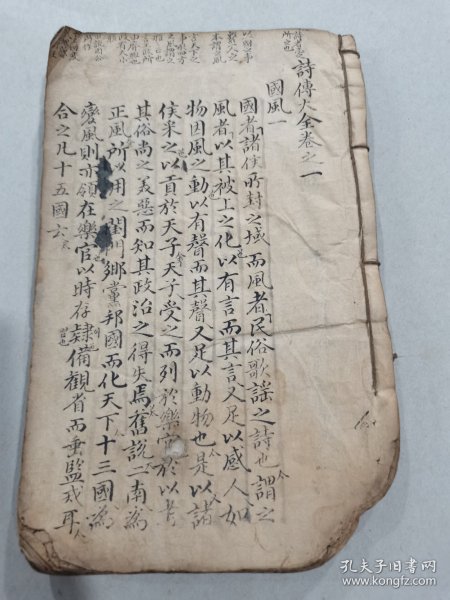 詩傳大全卷之一
國風一
國者諸侯所封之域而風者民俗歌謠之詩也謂之
風者以其被上之化以有言而其言又足以感人如
物因風之動以有聲而其聲又足以動物也是以諸
侯采之以貢於天子天子受之而列於樂官於以考
其俗尚之美惡而知其政治之得失焉舊說二南為
正風所以用之閨門鄉黨邦國而化天下十三國為
變風則亦領在樂官以時存隸備觀省而垂監戒耳
合之凡十五國云
孔夫子旧书网
www.kongfz.com